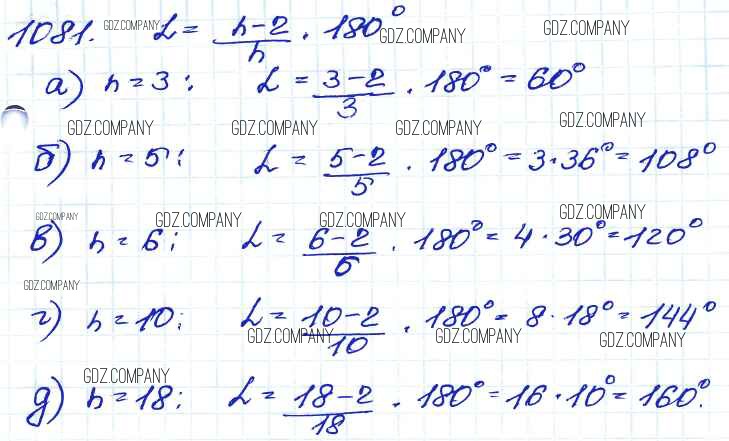 1081. α = (n-2)/n · 180°
GDZ.COMPANY GDZ.COMPANY GDZ.COMPANY
а) n = 3; α = (3-2)/3 · 180° = 60°
GDZ.COMPANY GDZ.COMPANY GDZ.COMPANY GDZ.COMPANY
б) n = 5; α = (5-2)/5 · 180° = 3·36° = 108°
GDZ.COMPANY GDZ.COMPANY GDZ.COMPANY GDZ.COMPANY
в) n = 6; α = (6-2)/6 · 180° = 4·30° = 120°
GDZ.COMPANY
г) n = 10; α = (10-2)/10 · 180° = 8·18° = 144°
GDZ.COMPANY GDZ.COMPANY GDZ.COMPANY
GDZ.COMPANY
д) n = 18; α = (18-2)/18 · 180° = 16·10° = 160°.